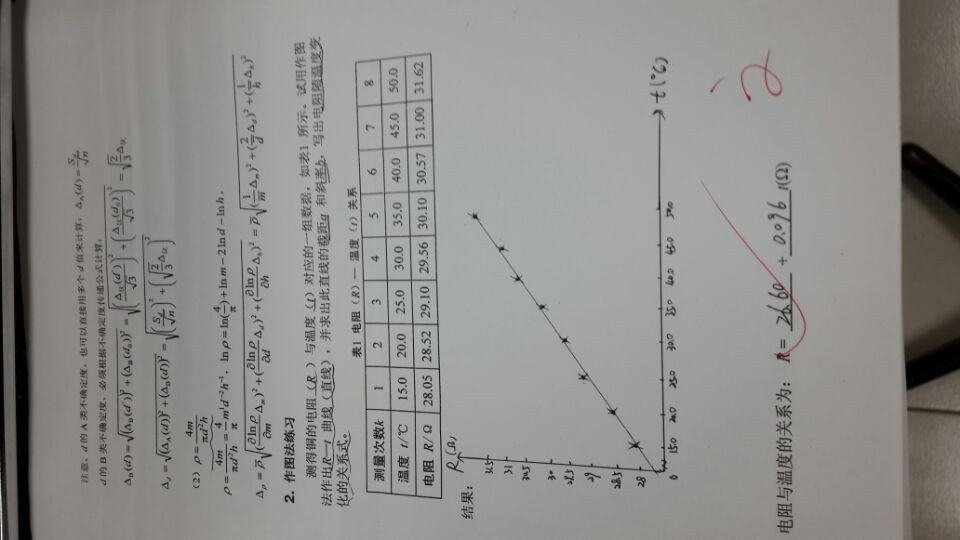 注意，d 的 A 类不确定度，也可以直接用多个 d 值来计算，Δ_A(d)=S_d/√n
d 的 B 类不确定度，必须根据不确定度传递公式计算。
Δ_B(d)=√((Δ_B(d'))²+(Δ_B(d₀))²)=√((Δ_仪(d')/√3)²+(Δ_仪(d₀)/√3)²)=√(2/3)Δ_仪
Δ_d=√((Δ_A(d))²+(Δ_B(d))²)=√((S_d/√n)²+(√(2/3)Δ_仪)²)
(2) ρ=4m/πd²h
ρ=4m/πd²h=(4/π)m¹d⁻²h⁻¹，lnρ=ln(4/π)+lnm-2lnd-lnh，
Δ_ρ=ρ̄√((∂lnρ/∂m Δ_m)²+(∂lnρ/∂d Δ_d)²+(∂lnρ/∂h Δ_h)²)=ρ̄√((1/m Δ_m)²+(2/d Δ_d)²+(1/h Δ_h)²)
2. 作图法练习
测得铜的电阻（R）与温度（t）对应的一组数据，如表1 所示。试用作图
法作出R—t 曲线（直线），并求出此直线的截距a 和斜率b，写出电阻随温度变
化的关系式。
表1 电阻（R）— 温度（t）关系
测量次数k 1 2 3 4 5 6 7 8
温度 t/℃ 15.0 20.0 25.0 30.0 35.0 40.0 45.0 50.0
电阻 R/Ω 28.05 28.52 29.10 29.56 30.10 30.57 31.00 31.62
结果：
R(Ω)
31.5
31
30.5
30
29.5
29
28.5
28
0 15.0 20.0 25.0 30.0 35.0 40.0 45.0 50.0 t(℃)
电阻与温度的关系为： R = 26.60 + 0.096 t(Ω)